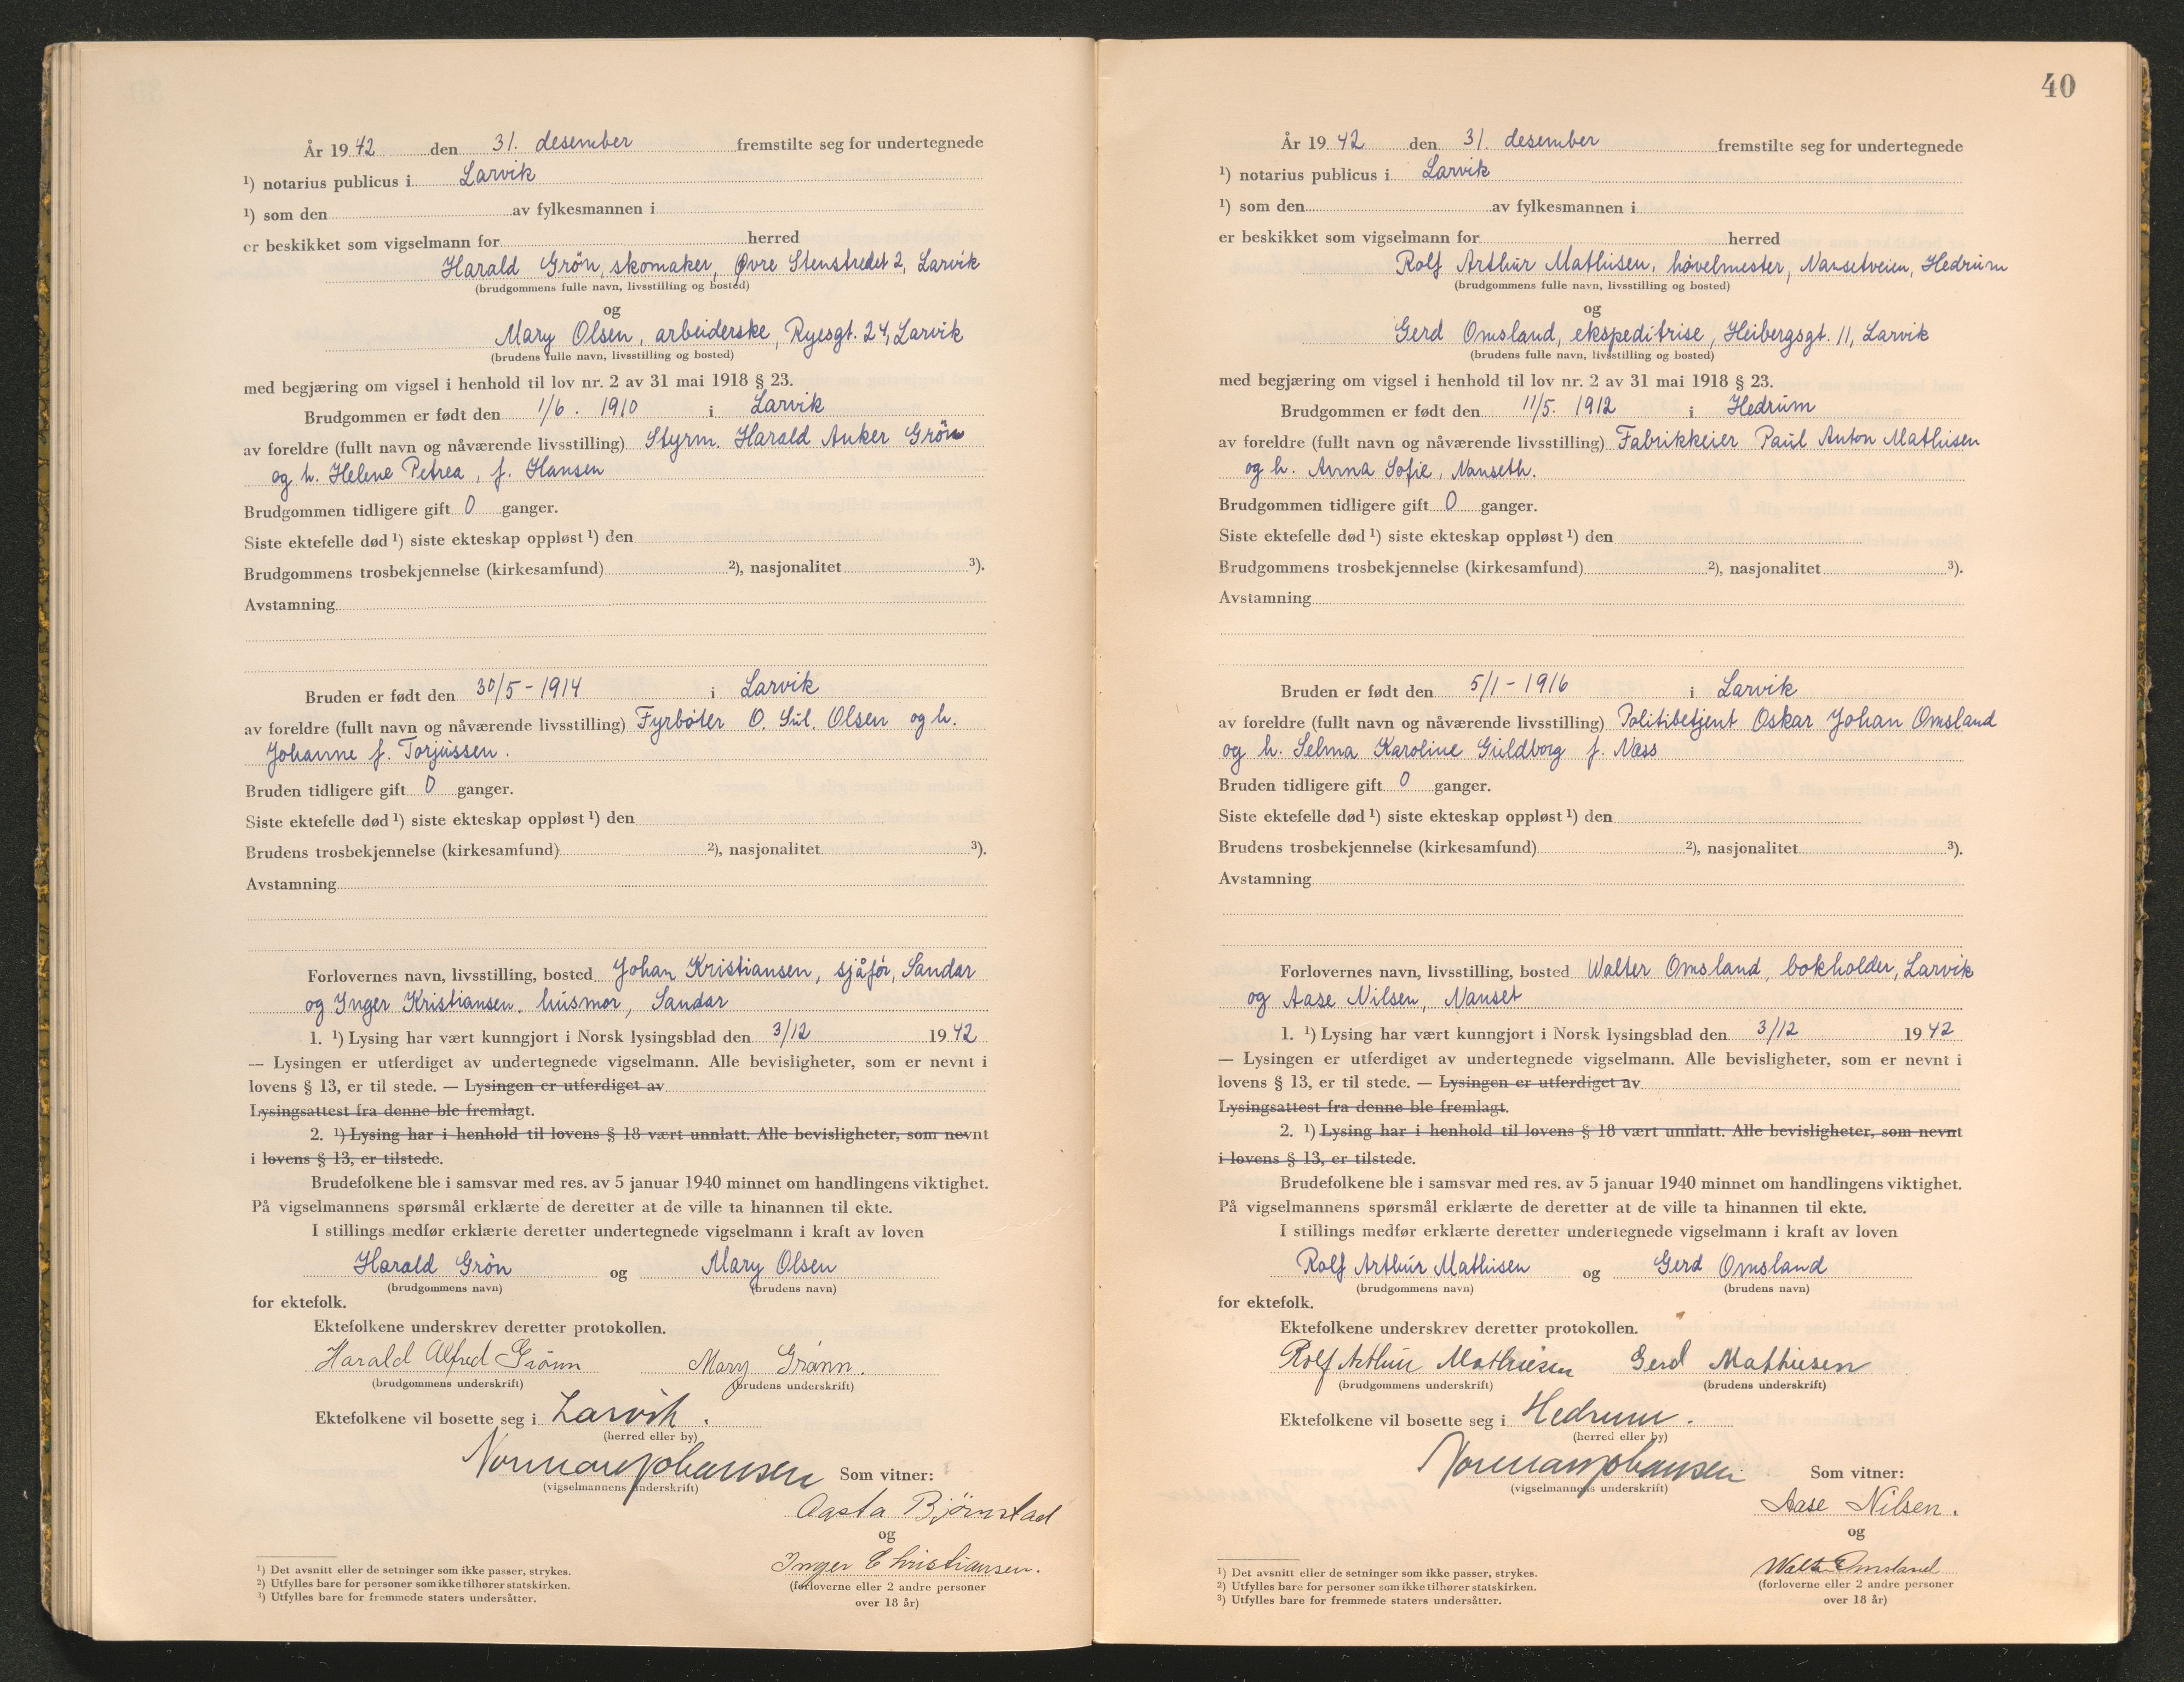 År 1942 den 31. desember fremstilte seg for undertegnede
¹) notarius publicus i Larvik
¹) som den av fylkesmannen i
er beskikket som vigselmann for herred
Harald Grön, skomaker, Øvre Stenstredet 2, Larvik
(brudgommens fulle navn, livsstilling og bosted)
og
Mary Olsen, arbeiderske, Ryesgt. 24, Larvik
(brudens fulle navn, livsstilling og bosted)
med begjæring om vigsel i henhold til lov nr. 2 av 31 mai 1918 § 23.
Brudgommen er født den 1/6. 1910 i Larvik
av foreldre (fullt navn og nåværende livsstilling) Styrm. Harald Anker Grön
og h. Helene Petrea, f. Hansen
Brudgommen tidligere gift 0 ganger.
Siste ektefelle død ¹) siste ekteskap oppløst ¹) den
Brudgommens trosbekjennelse (kirkesamfund) ²), nasjonalitet ³).
Avstamning
Bruden er født den 30/5 - 1914 i Larvik
av foreldre (fullt navn og nåværende livsstilling) Fyrbøter O. Sul. Olsen og h.
Johanne f. Torjussen.
Bruden tidligere gift 0 ganger.
Siste ektefelle død ¹) siste ekteskap oppløst ¹) den
Brudens trosbekjennelse (kirkesamfund) ²), nasjonalitet ³).
Avstamning
Forlovernes navn, livsstilling, bosted Johan Kristiansen, sjåfør, Sandar
og Inger Kristiansen, husmor, Sandar
1. ¹) Lysing har vært kunngjort i Norsk lysingsblad den 3/12 1942
— Lysingen er utferdiget av undertegnede vigselmann. Alle bevisligheter, som er nevnt i
lovens § 13, er til stede. — Lysingen er utferdiget av
Lysingsattest fra denne ble fremlagt.
2. ¹) Lysing har i henhold til lovens § 18 vært unnlatt. Alle bevisligheter, som nevnt
i lovens § 13, er tilstede.
Brudefolkene ble i samsvar med res. av 5 januar 1940 minnet om handlingens viktighet.
På vigselmannens spørsmål erklærte de deretter at de ville ta hinannen til ekte.
I stillings medfør erklærte deretter undertegnede vigselmann i kraft av loven
Harald Grön og Mary Olsen
(brudgommens navn) (brudens navn)
for ektefolk.
Ektefolkene underskrev deretter protokollen.
Harald Alfred Grönn Mary Grønn.
(brudgommens underskrift) (brudens underskrift)
Ektefolkene vil bosette seg i Larvik.
(herred eller by)
Norman Johansen Som vitner:
(vigselmannens underskrift)
Agsta Bjørnstad
og
Inger Christiansen.
(forloverne eller 2 andre personer
over 18 år)
¹) Det avsnitt eller de setninger som ikke passer, strykes.
²) Utfylles bare for personer som ikke tilhører statskirken.
³) Utfylles bare for fremmede staters undersåtter.
40
År 1942 den 31. desember fremstilte seg for undertegnede
¹) notarius publicus i Larvik
¹) som den av fylkesmannen i
er beskikket som vigselmann for herred
Rolf Arthur Mathisen, høvelmester, Nansetveien, Hedrum
(brudgommens fulle navn, livsstilling og bosted)
og
Gerd Omsland, ekspeditrise, Heibergsgt. 11, Larvik
(brudens fulle navn, livsstilling og bosted)
med begjæring om vigsel i henhold til lov nr. 2 av 31 mai 1918 § 23.
Brudgommen er født den 11/5. 1912 i Hedrum
av foreldre (fullt navn og nåværende livsstilling) Fabrikkeier Paul Anton Mathisen
og h. Anna Sofie, Nanseth.
Brudgommen tidligere gift 0 ganger.
Siste ektefelle død ¹) siste ekteskap oppløst ¹) den
Brudgommens trosbekjennelse (kirkesamfund) ²), nasjonalitet ³).
Avstamning
Bruden er født den 5/1 - 1916 i Larvik
av foreldre (fullt navn og nåværende livsstilling) Politibetjent Oskar Johan Omsland
og h. Selma Karoline Guldborg f. Næss
Bruden tidligere gift 0 ganger.
Siste ektefelle død ¹) siste ekteskap oppløst ¹) den
Brudens trosbekjennelse (kirkesamfund) ²), nasjonalitet ³).
Avstamning
Forlovernes navn, livsstilling, bosted Walter Omsland, bokholder, Larvik
og Aase Nilsen, Nanset
1. ¹) Lysing har vært kunngjort i Norsk lysingsblad den 3/12 1942
— Lysingen er utferdiget av undertegnede vigselmann. Alle bevisligheter, som er nevnt i
lovens § 13, er til stede. — Lysingen er utferdiget av
Lysingsattest fra denne ble fremlagt.
2. ¹) Lysing har i henhold til lovens § 18 vært unnlatt. Alle bevisligheter, som nevnt
i lovens § 13, er tilstede.
Brudefolkene ble i samsvar med res. av 5 januar 1940 minnet om handlingens viktighet.
På vigselmannens spørsmål erklærte de deretter at de ville ta hinannen til ekte.
I stillings medfør erklærte deretter undertegnede vigselmann i kraft av loven
Rolf Arthur Mathisen og Gerd Omsland
(brudgommens navn) (brudens navn)
for ektefolk.
Ektefolkene underskrev deretter protokollen.
Rolf Arthur Mathiesen Gerd Mathiesen
(brudgommens underskrift) (brudens underskrift)
Ektefolkene vil bosette seg i Hedrum.
(herred eller by)
Norman Johansen Som vitner:
(vigselmannens underskrift)
Aase Nilsen.
og
Walter Omsland
(forloverne eller 2 andre personer
over 18 år)
¹) Det avsnitt eller de setninger som ikke passer, strykes.
²) Utfylles bare for personer som ikke tilhører statskirken.
³) Utfylles bare for fremmede staters undersåtter.